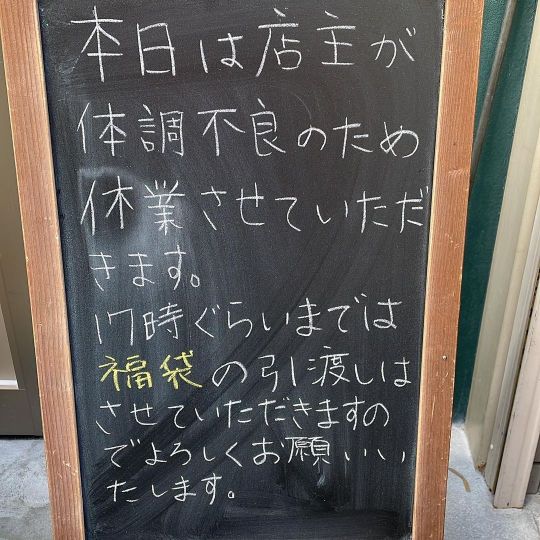 本日は店主が
体調不良のため
休業させていただ
きます。
17時ぐらいまでは
福袋の引き渡しは
させていただきますの
でよろしくお願いい
たします。